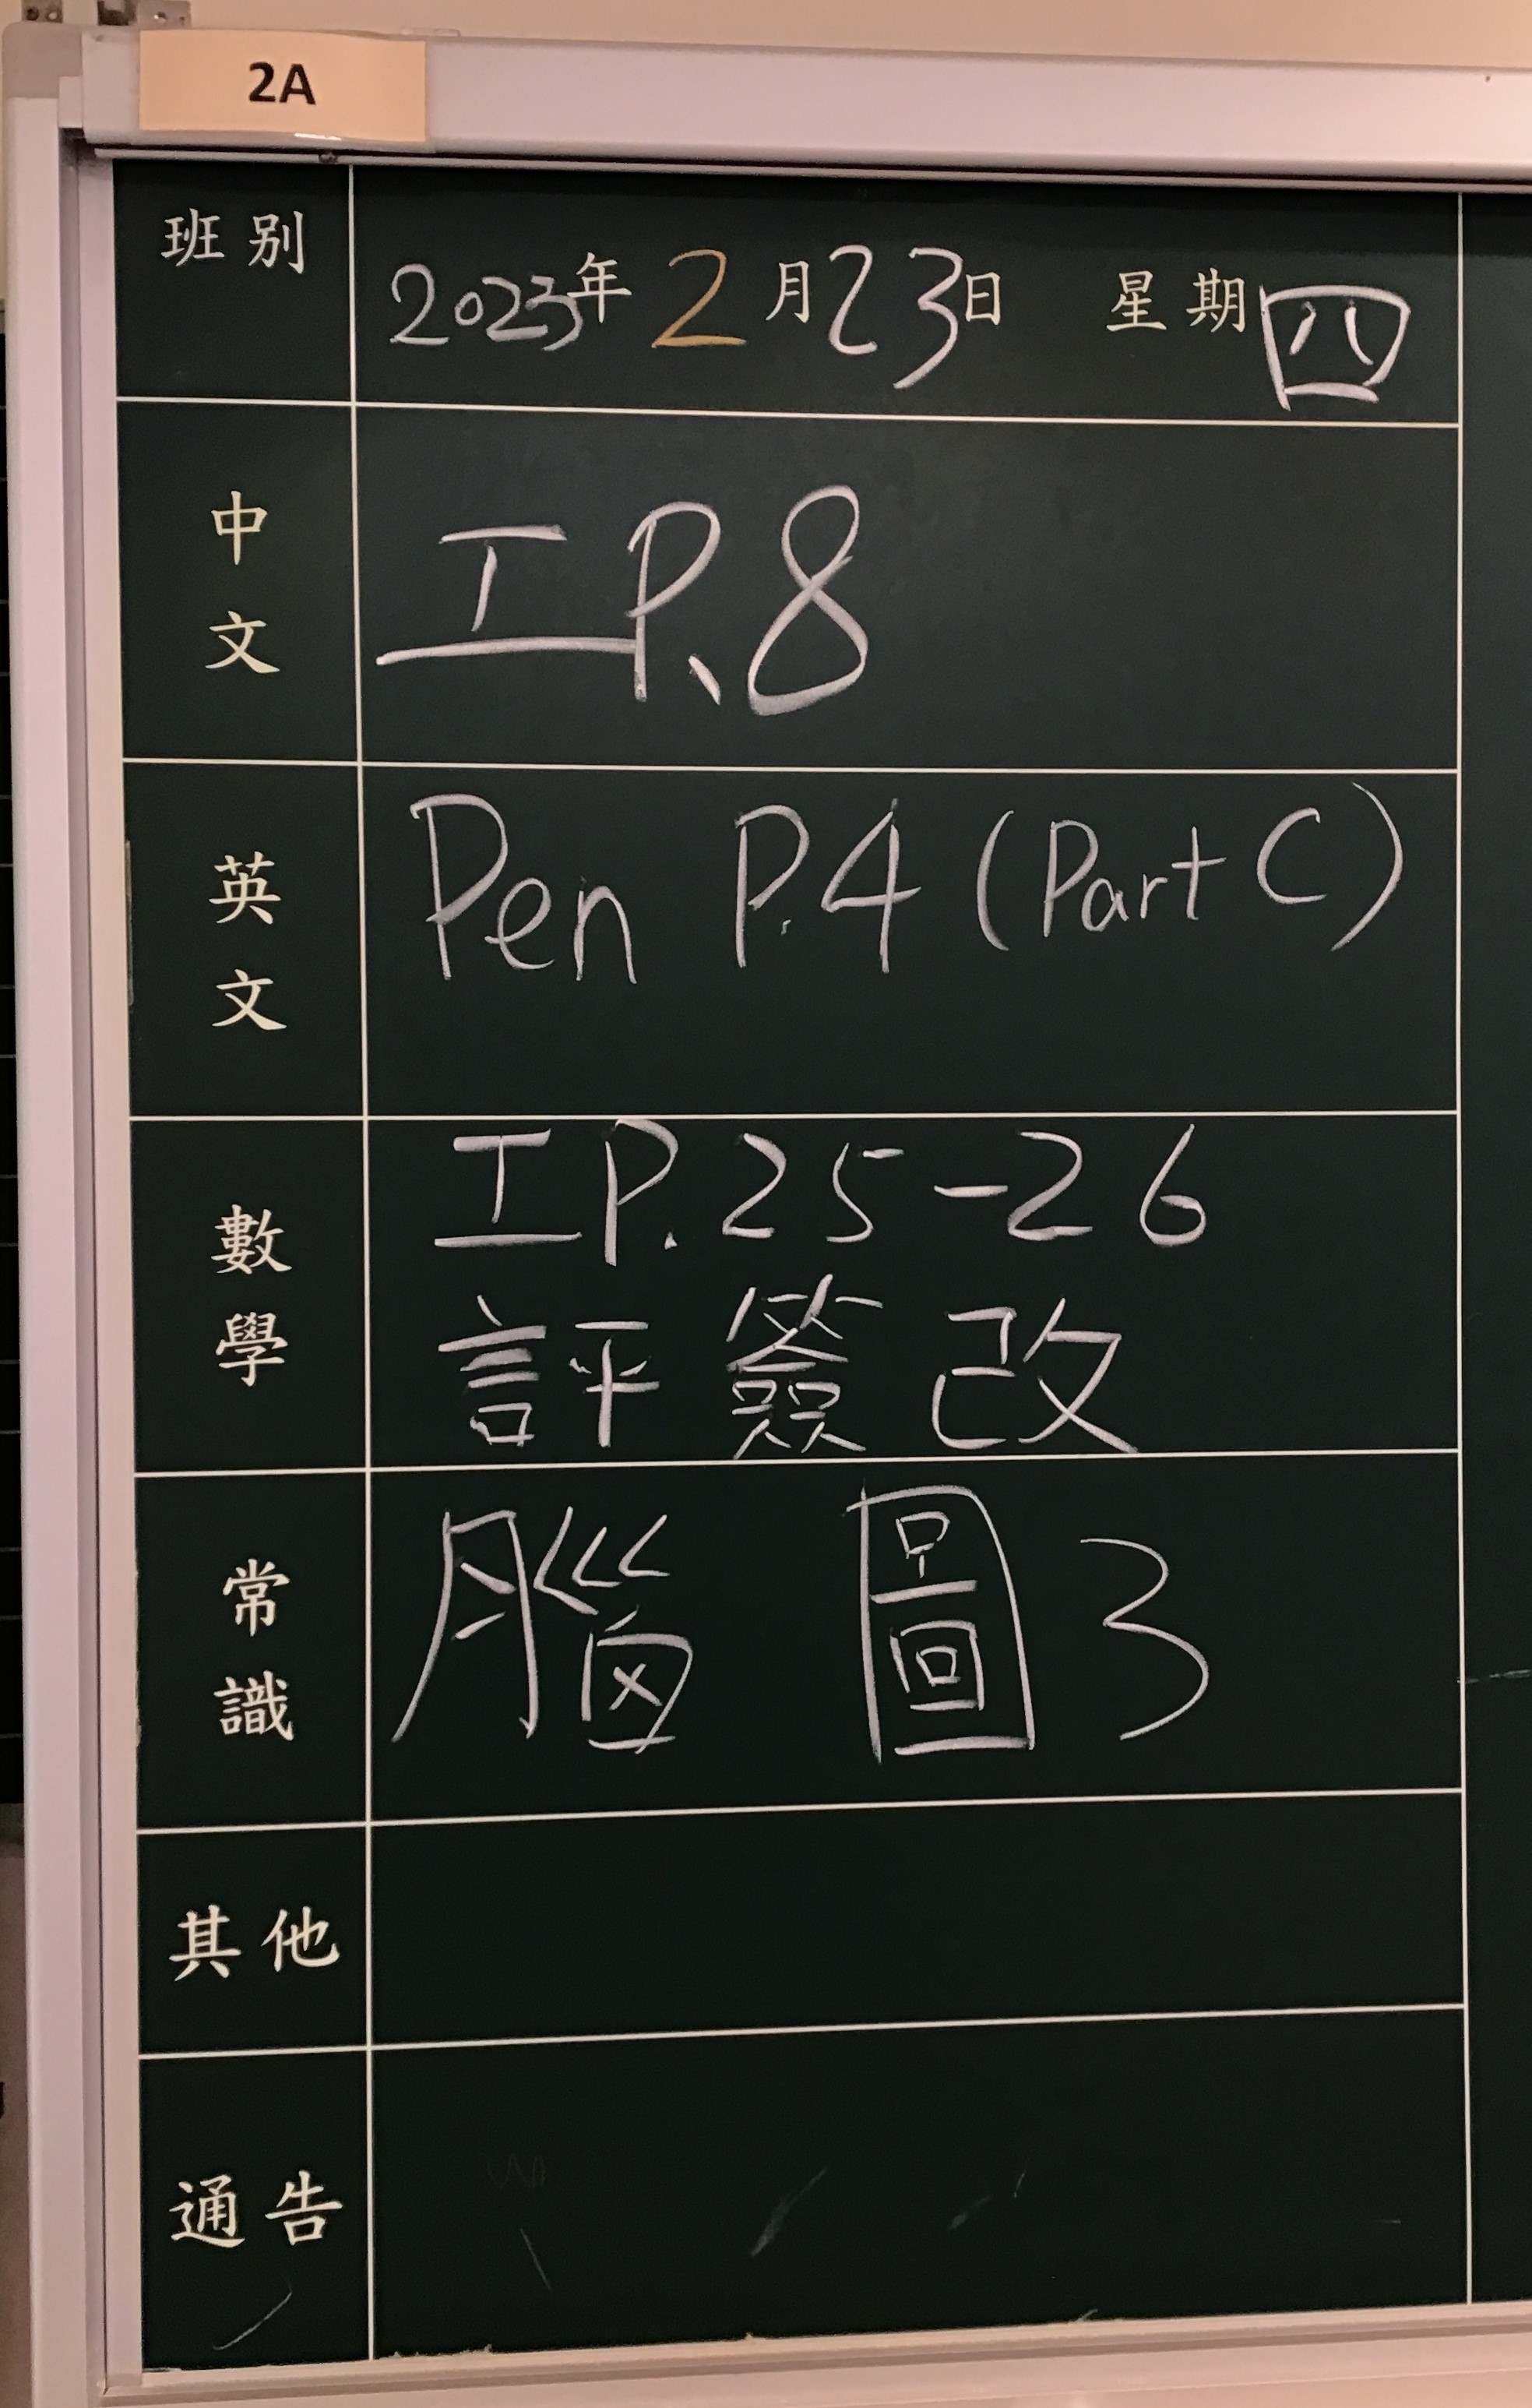 2A
班別 2023年2月23日 星期四
中文 工P.8
英文 Pen P.4 (Part C)
數學 工P.25-26
評簽改
常識 腦 圖3
其他
通告